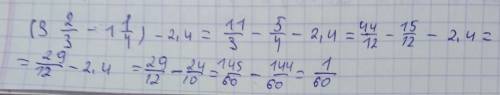 (3 2/3 - 1 1/4) - 2,4 = 11/3 - 5/4 - 2,4 = 44/12 - 15/12 - 2,4 =
= 29/12 - 2,4 = 29/12 - 24/10 = 145/60 - 144/60 = 1/60